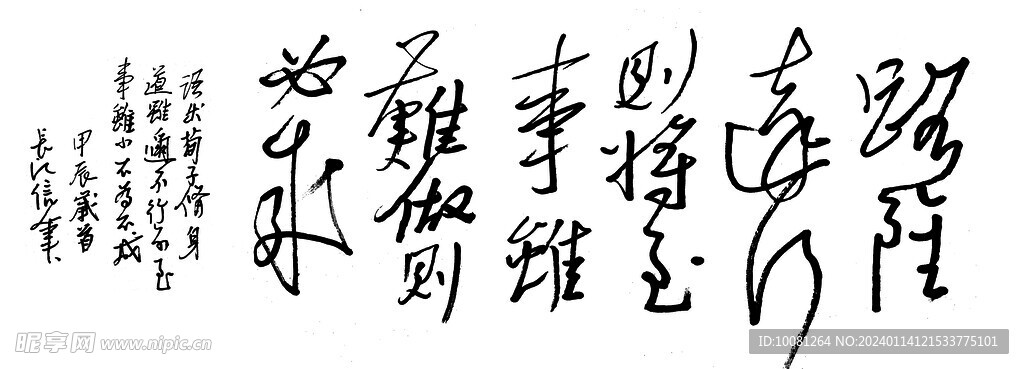 路雖
遠行
則將至
事雖
難做則
必成
语出荀子脩身
道雖邇不行不至
事雖小不為不成
甲辰歲首
長江信筆
昵享网 www.nipic.cn
ID:10081264 NO:20240114121533775101